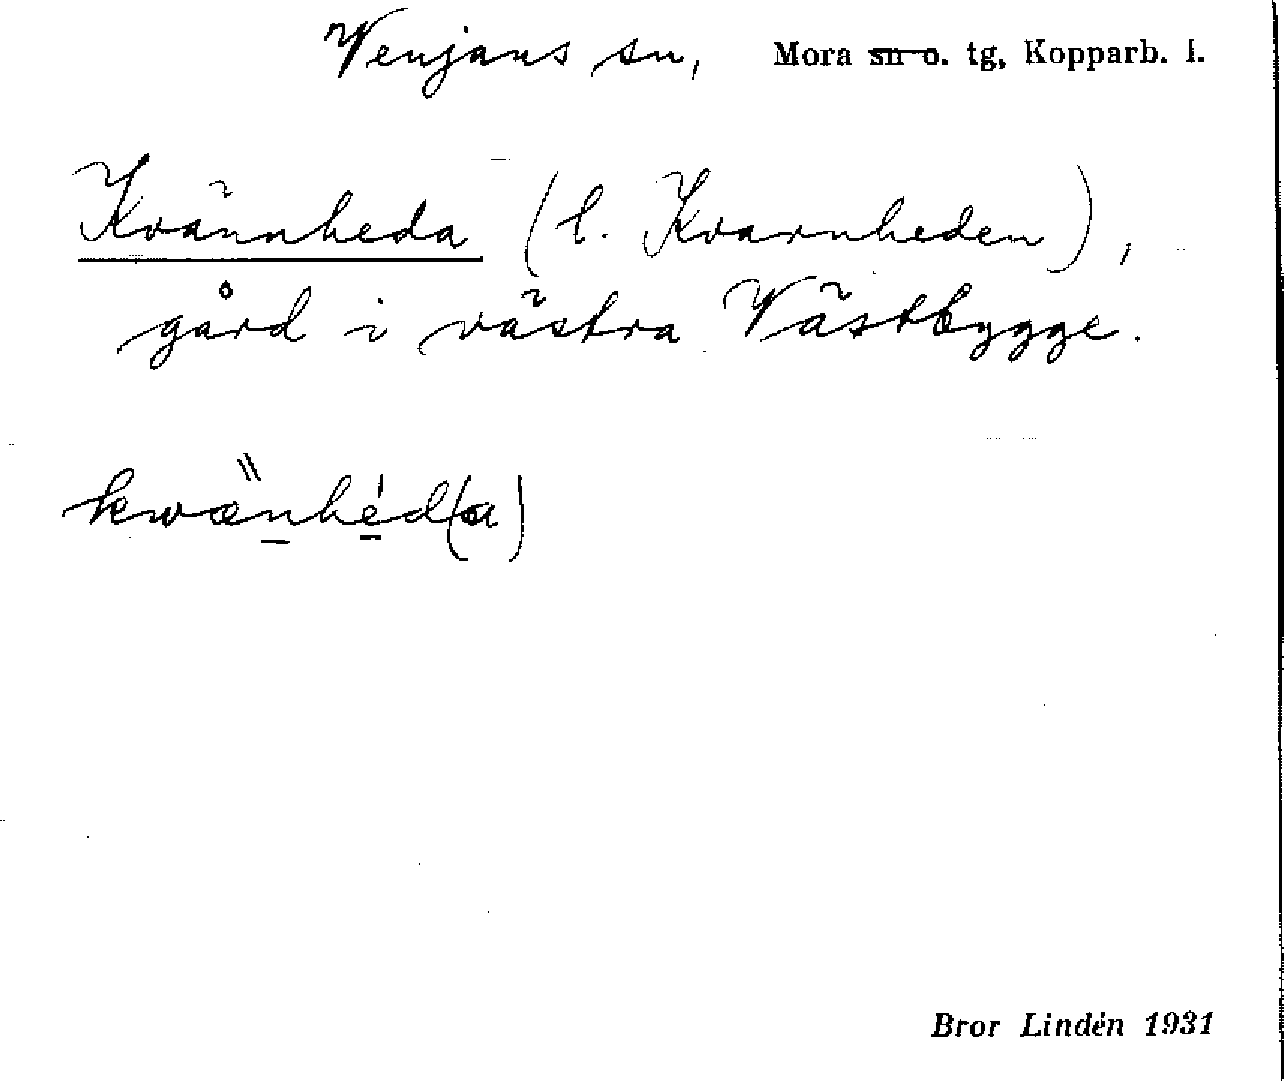 Venjans sn, Mora sn o. tg, Kopparb. l.
Kvännheda (l. Kvarnheden),
gård i västra Västbygge.
kwænhed(a)
Bror Lindén 1931